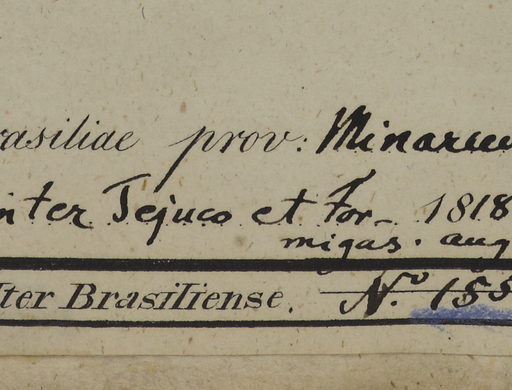 rasiliae prov: Minarum
inter Tejuco et For- 1818
migas. aug
Iter Brasiliense. No. 155